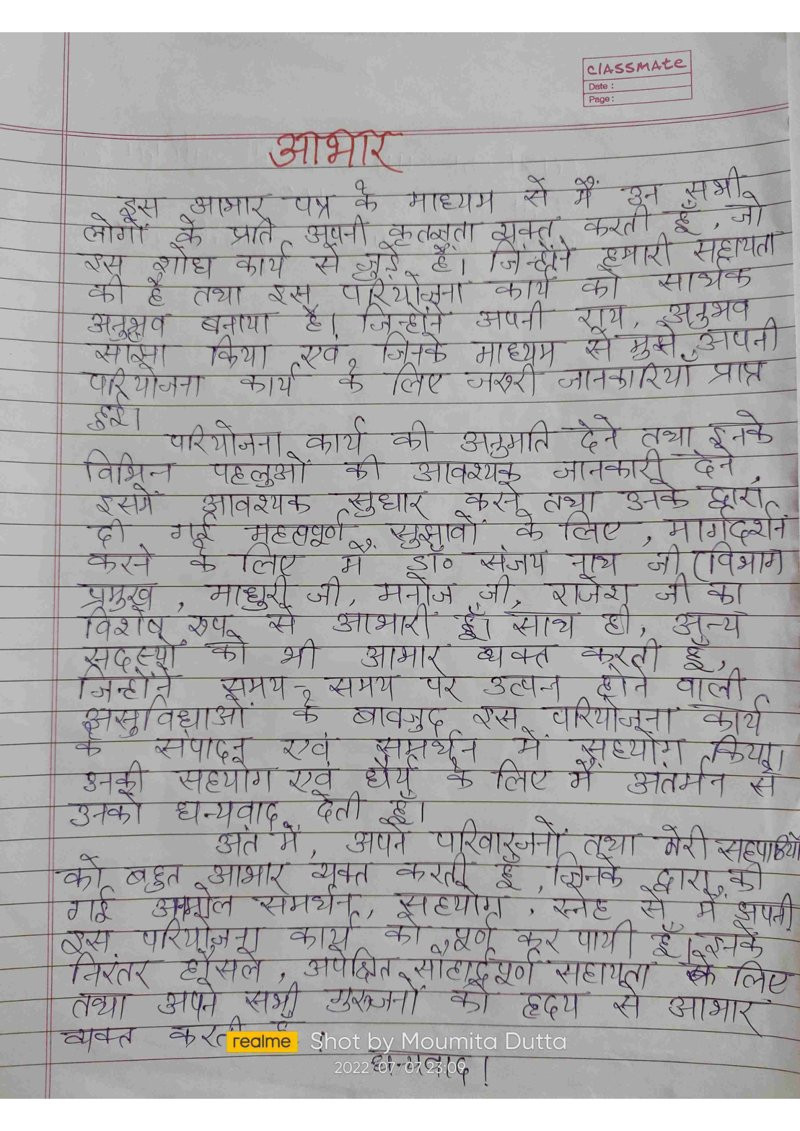 classmate
Date :
Page :
आभार
इस आभार पत्र के माध्यम से मैं उन सभी
लोगों के प्रति अपनी कृतज्ञता व्यक्त करती हूँ, जो
इस शोध कार्य से जुड़े हैं। जिन्होंने हमारी सहायता
की है तथा इस परियोजना कार्य को सार्थक
अनुभव बनाया है। जिन्होंने अपनी राय, अनुभव
साँझा किया एवं जिनके माध्यम से मुझे अपनी
परियोजना कार्य के लिए जरुरी जानकारियाँ प्राप्त
हुई।
परियोजना कार्य की अनुमति देने तथा इनके
विभिन्न पहलुओं की आवश्यक जानकारी देने,
इसमें आवश्यक सुधार करने तथा उनके द्वारा
दी गई महत्वपूर्ण सुझावों के लिए, मार्गदर्शन
करने के लिए मैं डॉ० संजय नाथ जी (विभाग
प्रमुख, माधुरी जी, मनोज जी, राजेश जी का
विशेष रुप से आभारी हूँ। साथ ही, अन्य
सदस्यों को भी आभार व्यक्त करती हूँ,
जिन्होंने समय-समय पर उत्पन्न होने वाली
असुविधाओं के बावजुद इस परियोजना कार्य
के संपादन एवं समर्थन में सहयोग किया।
उनकी सहयोग एवं धैर्य के लिए मैं अंतर्मन से
उनको धन्यवाद देती हूँ।
अंत में, अपने परिवारजनों तथा मेरी सहपाठियों
को बहुत आभार व्यक्त करती हूँ, जिनके द्वारा की
गई अनमोल समर्थन, सहयोग, स्नेह से मैं अपनी
इस परियोजना कार्य को पूर्ण कर पायी हूँ। इनके
निरंतर हौंसले, अपेक्षित सौहार्दपूर्ण सहायता के लिए
तथा अपने सभी गुरुजनों को हृदय से आभार
व्यक्त करती हूँ।
धन्यवाद।
realme Shot by Moumita Dutta
2022/07/07 23:09